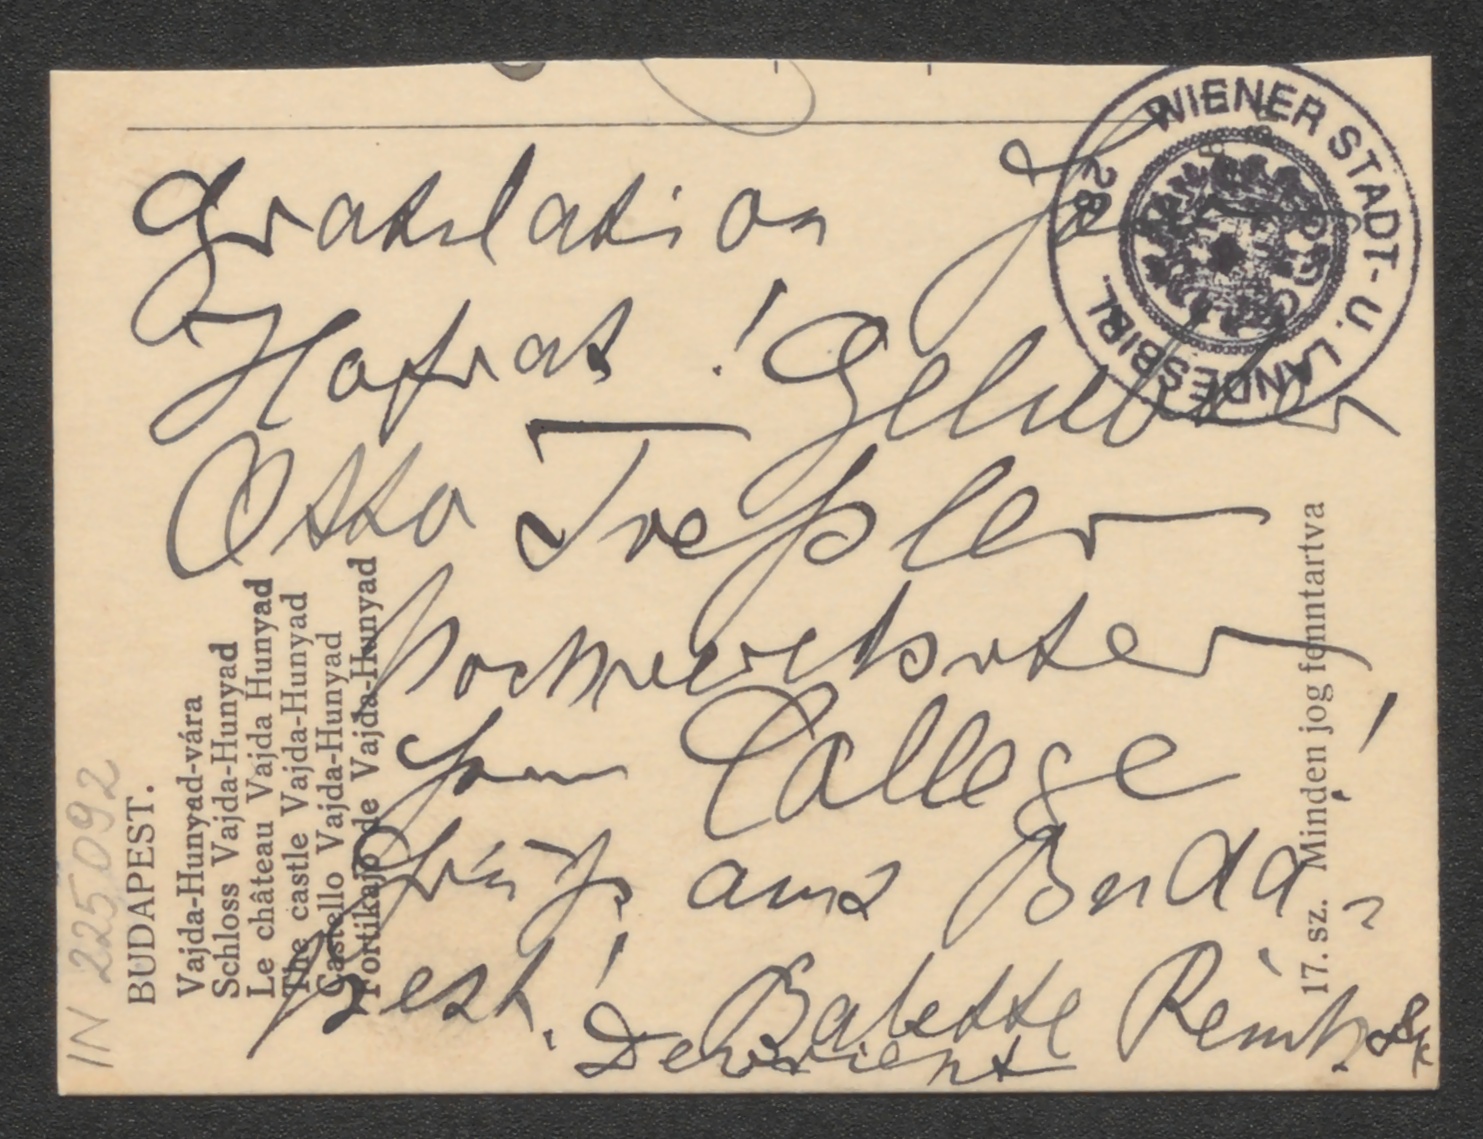 Gratulation Herr
Hofrat! Geliebter
Otto Treßler
hochverehrter
Herr College!
Grüße aus Buda-
pest! Babette Reinhold
Devrient
BUDAPEST.
Vajda-Hunyad-vára
Schloss Vajda-Hunyad
Le château Vajda Hunyad
The castle Vajda-Hunyad
Castello Vajda-Hunyad
Fortikajo de Vajda-Hunyad
17. sz. Minden jog fenntartva
IN 225092
WIENER STADT- U. LANDESBIBL.